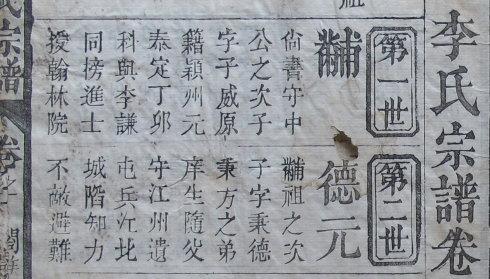 李氏宗譜卷
祖
第一世
黼
尚書守中
公之次子
字子威原
籍穎州元
泰定丁卯
科與李謙
同榜進士
授翰林院
第二世
德元
黼祖之次
子字秉德
秉方之弟
庠生隨父
守江州遺
屯兵江北
城陷知力
不敵避難
氏宗譜
卷之